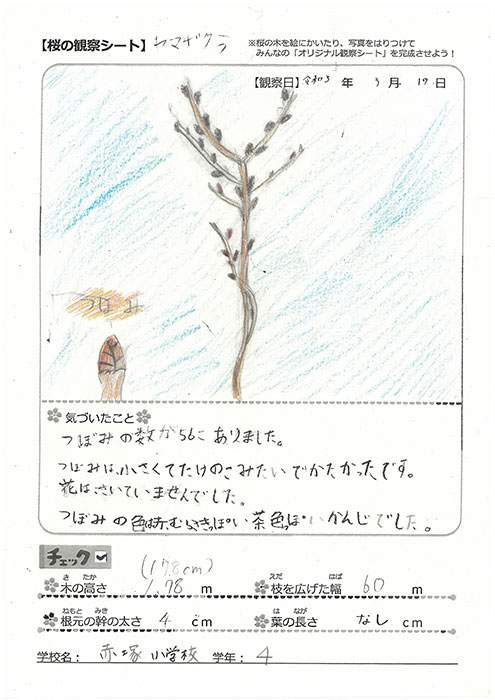 【桜の観察シート】ヤマザクラ
※桜の木を絵にかいたり、写真をはりつけて
みんなの「オリジナル観察シート」を完成させよう！
【観察日】令和3年3月17日
つぼみ
気づいたこと
つぼみの数が56こありました。
つぼみは、小さくてたけのこみたいでかたかったです。
花はさいていませんでした。
つぼみの色は赤むらさきっぽい茶色っぽいかんじでした。
チェック
(178cm)
きたかえだはば
木の高さ 1.78 m 枝を広げた幅 60 m
ねもとみきはなが
根元の幹の太さ 4 cm 葉の長さ なし cm
学校名： 赤塚小学校 学年： 4